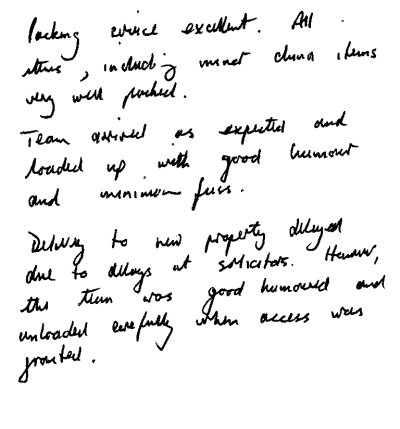 Packing service excellent. All
items, including most china items
very well packed.
Team arrived as expected and
loaded up with good humour
and minimum fuss.
Delivery to new property delayed
due to delays at solicitors. However,
the team was good humoured and
unloaded carefully when access was
granted.